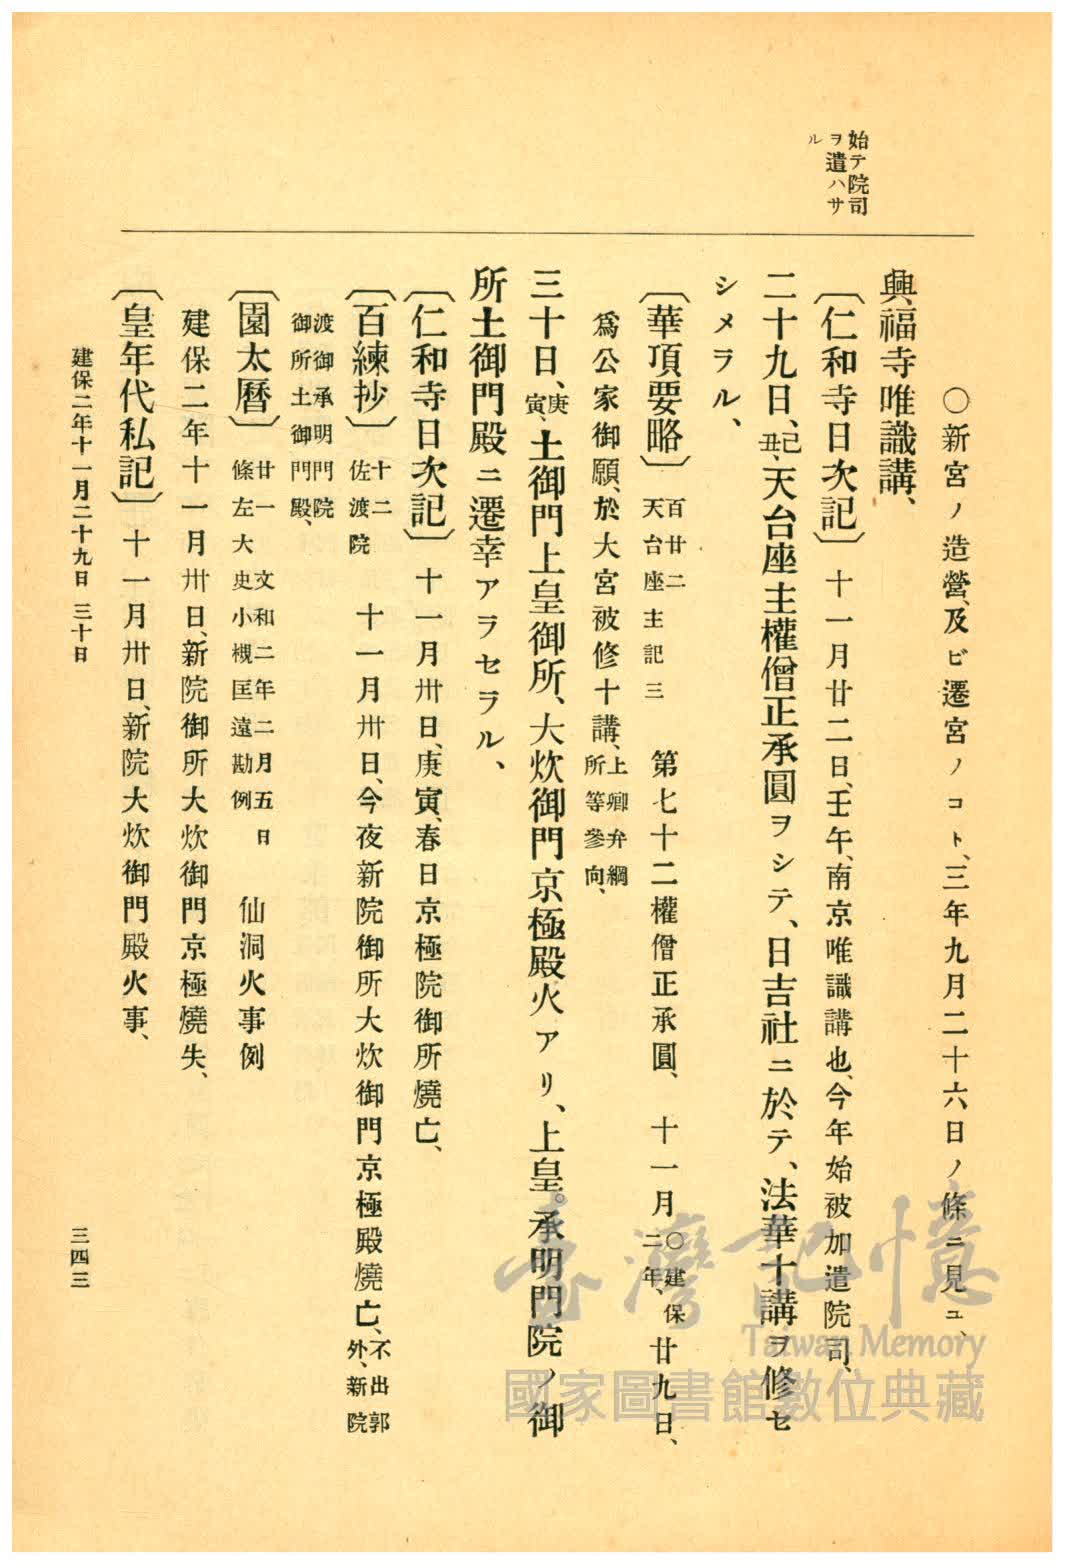 始テ院司
ヲ遣ハサ
ル
○新宮ノ造營、及ビ遷宮ノコト、三年九月二十六日ノ條ニ見ユ、
興福寺唯識講、
〔仁和寺日次記〕十一月廿二日、壬午、南京唯識講也、今年始被加遣院司、
二十九日、己丑、天台座主權僧正承圓ヲシテ、日吉社ニ於テ、法華十講ヲ修セ
シメラル、
〔華頂要略〕百廿二天台座主記三 第七十二權僧正承圓、 十一月○建保二年、廿九日、
爲公家御願、於大宮被修十講、上卿弁綱所等參向、
三十日、庚寅、土御門上皇御所、大炊御門京極殿火アリ、上皇。承明門院ノ御
所土御門殿ニ遷幸アラセラル、
〔仁和寺日次記〕十一月卅日、庚寅、春日京極院御所燒亡、
〔百練抄〕十二佐渡院 十一月卅日、今夜新院御所大炊御門京極殿燒亡、不出郭外、新院
渡御承明門院御所土御門殿、
〔園太曆〕廿一文和二年二月五日條左大史小槻匡遠勘例 仙洞火事例
建保二年十一月卅日、新院御所大炊御門京極燒失、
〔皇年代私記〕十一月卅日、新院大炊御門殿火事、
建保二年十一月二十九日 三十日
三四三
臺灣記憶
Taiwan Memory
國家圖書館數位典藏